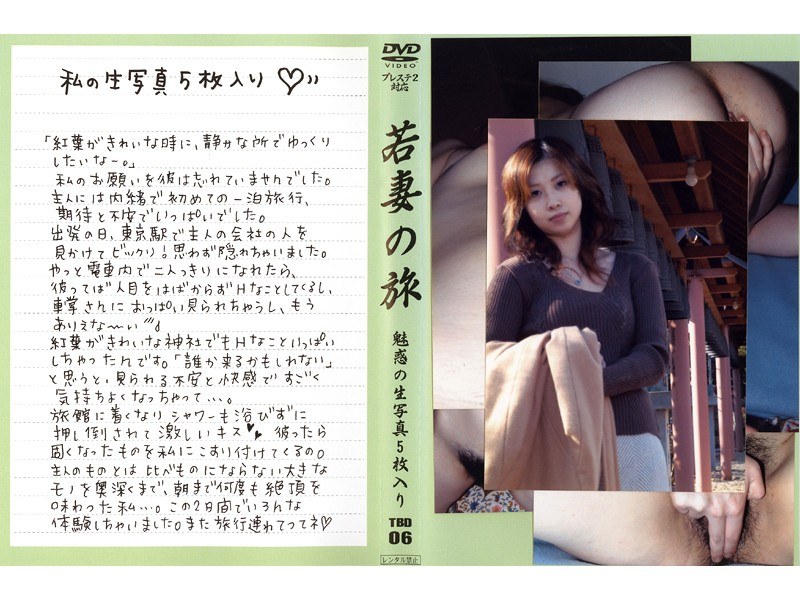 私の生写真5枚入り♡〃
「紅葉がきれいな時に、静かな所でゆっくり
したいなー。」
私のお願いを彼は忘れていませんでした。
主人には内緒で初めての一泊旅行、
期待と不安でいっぱいでした。
出発の日、東京駅で主人の会社の人を
見かけてビックリ!思わず隠れちゃいました。
やっと電車内で二人っきりになれたら、
彼ってば人目をはばからずHなことしてくるし、
車掌さんにおっぱい見られちゃうし、もう
ありえな〜い
紅葉がきれいな神社でもHなこといっぱい
しちゃったんです。「誰か来るかもしれない」
と思うと、見られる不安と快感ですごく
気持ちよくなっちゃって…。
旅館に着くなりシャワーも浴びずに
押し倒されて激しいキス♥ 彼ったら
固くなったものを私にこすり付けてくるの。
主人のものとは比べものにならない大きな
モノを奥深くまで、朝まで何度も絶頂を
味わった私…。この2日間でいろんな
体験しちゃいました。また旅行連れてってネ♡
DVD
VIDEO
プレステ2
対応
若妻の旅
魅惑の生写真5枚入り
TBD
06
レンタル禁止